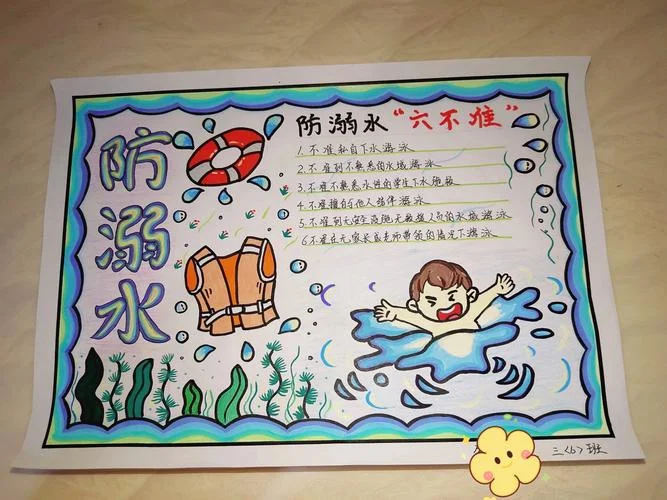 防溺水
防溺水“六不准”
1.不准私自下水游泳
2.不准到不熟悉的水域游泳
3.不准不熟悉水性的学生下水施救
4.不准擅自与他人结伴游泳
5.不准到无安全设施无救援人员的水域游泳
6.不准在无家长或老师带领的情况下游泳
三〈6〉班